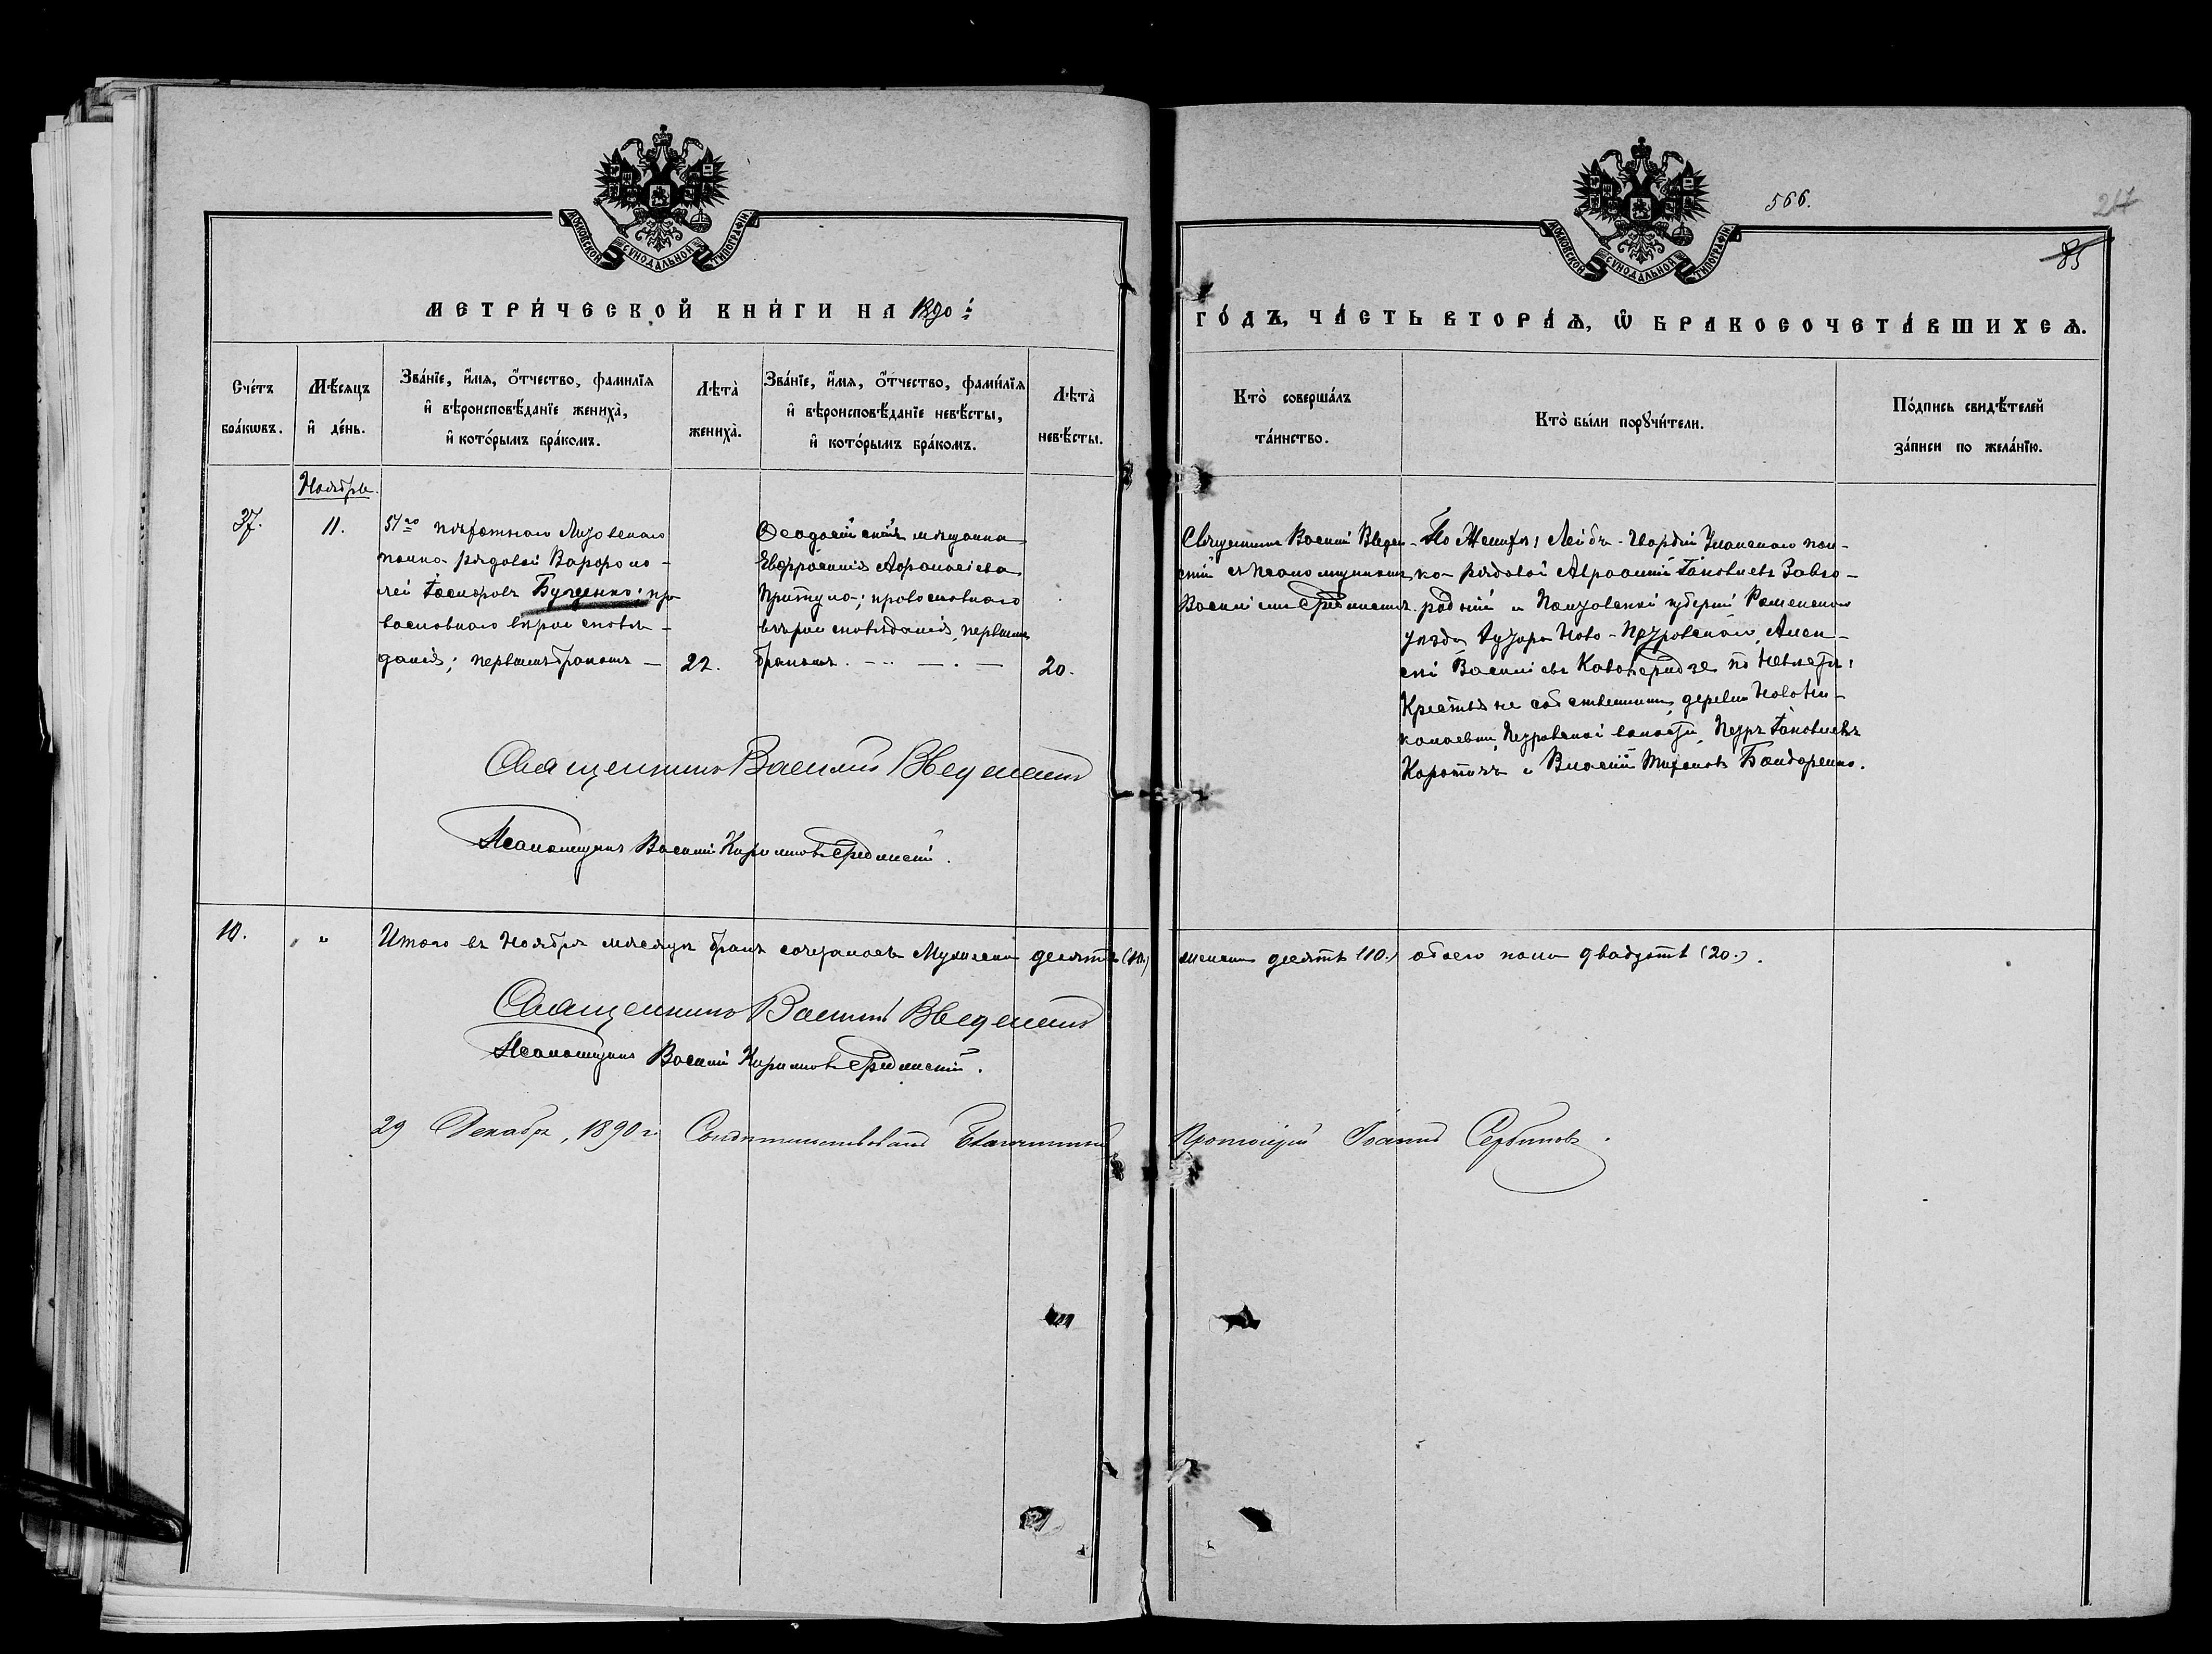 566.
85
МОСКОВСКОЙ СѴНОДАЛЬНОЙ ТИПОГРАФІИ
МОСКОВСКОЙ СѴНОДАЛЬНОЙ ТИПОГРАФІИ
МЕТРИ́ЧЕСКОЙ КНИ́ГИ НА 1890й
ГО́ДЪ, ЧА́СТЬ ВТОРА́Ѧ, Ѿ БРАКОСОЧЕТА́ВШИХСѦ.
Сче́тъ бра́кωвъ.
Мѣ́сяцъ и҆ де́нь.
Зва́нїе, и҆́мя, ѻ҆́тчество, фамилїя и҆ вѣроисповѣ́данїе жениха̀, и҆ кото́рымъ бра́комъ.
Лѣта̀ жениха̀.
Зва́нїе, и҆́мя, ѻ҆́тчество, фами́лїя и҆ вѣроисповѣ́данїе невѣ́сты, и҆ кото́рымъ бра́комъ.
Лѣта̀ невѣ́сты.
Кто̀ соверша́лъ та́инство.
Кто̀ бы́ли порꙋчи́тели.
По́дпись свидѣ́телей за́писи по жела́нїю.
Ноябрь.
37.
11.
51го пѣхотнаго Литовскаго
полка рядовой Варфоло-
мей Іосифовъ Бутенко; пра
вославнаго вѣроисповѣ-
данія; первымъ бракомъ —
22.
Феодосійская мѣщанка
Евфросинія Афанасіева
Притула; православнаго
вѣроисповѣданія, первымъ
бракомъ.
20.
Священникъ Василій Введен-
скій съ псаломщикомъ
Василіемъ Срединскимъ.
По Женихѣ: Лейбъ-Гвардіи Уланскаго пол-
ка рядовой Авраамій Іаковлевъ Заво-
родній и Полтавской губерніи Роменскаго
уѣзда, хутора Ново-Петровскаго, Алек-
сѣй Васильевъ по Невѣстѣ:
Крестьяне собственники, деревни Новони-
колаевки, Петровской волости, Петръ Іаковлевъ
Коротичъ и Власій Тихоновъ Бондаренко.
Священникъ Василій Введенскій
Псаломщикъ Василій Кириловъ Срединскій.
10.
"
Итого въ Ноябрѣ мѣсяцѣ бракъ сочеталось Мужеска десять (10.)
женска десять (10.) обоего пола двадцать (20.).
Священникъ Василій Введенскій
Псаломщикъ Василій Кириловъ Срединскій.
29 Декабря, 1890 г. Свидѣтельствовалъ Благочинный
Протоіерей Іоаннъ Сербиновъ.